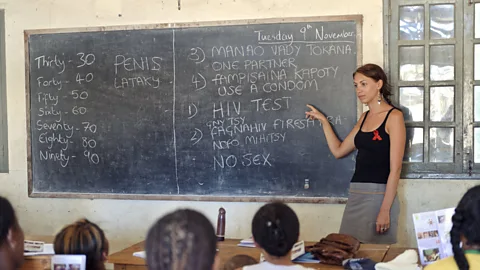 Tuesday 9th November
Thirty - 30
Forty - 40
Fifty - 50
Sixty - 60
Seventy - 70
Eighty - 80
Ninety - 90
PENIS
LATAKY
3) MANAO VADY TOKANA
ONE PARTNER
4) FAMPISAINA KAPOTY
USE A CONDOM
1) HIV TEST
NY TSY
2) FAGNAHIV FIRESAKA
NDAO MIHITSY
NO SEX